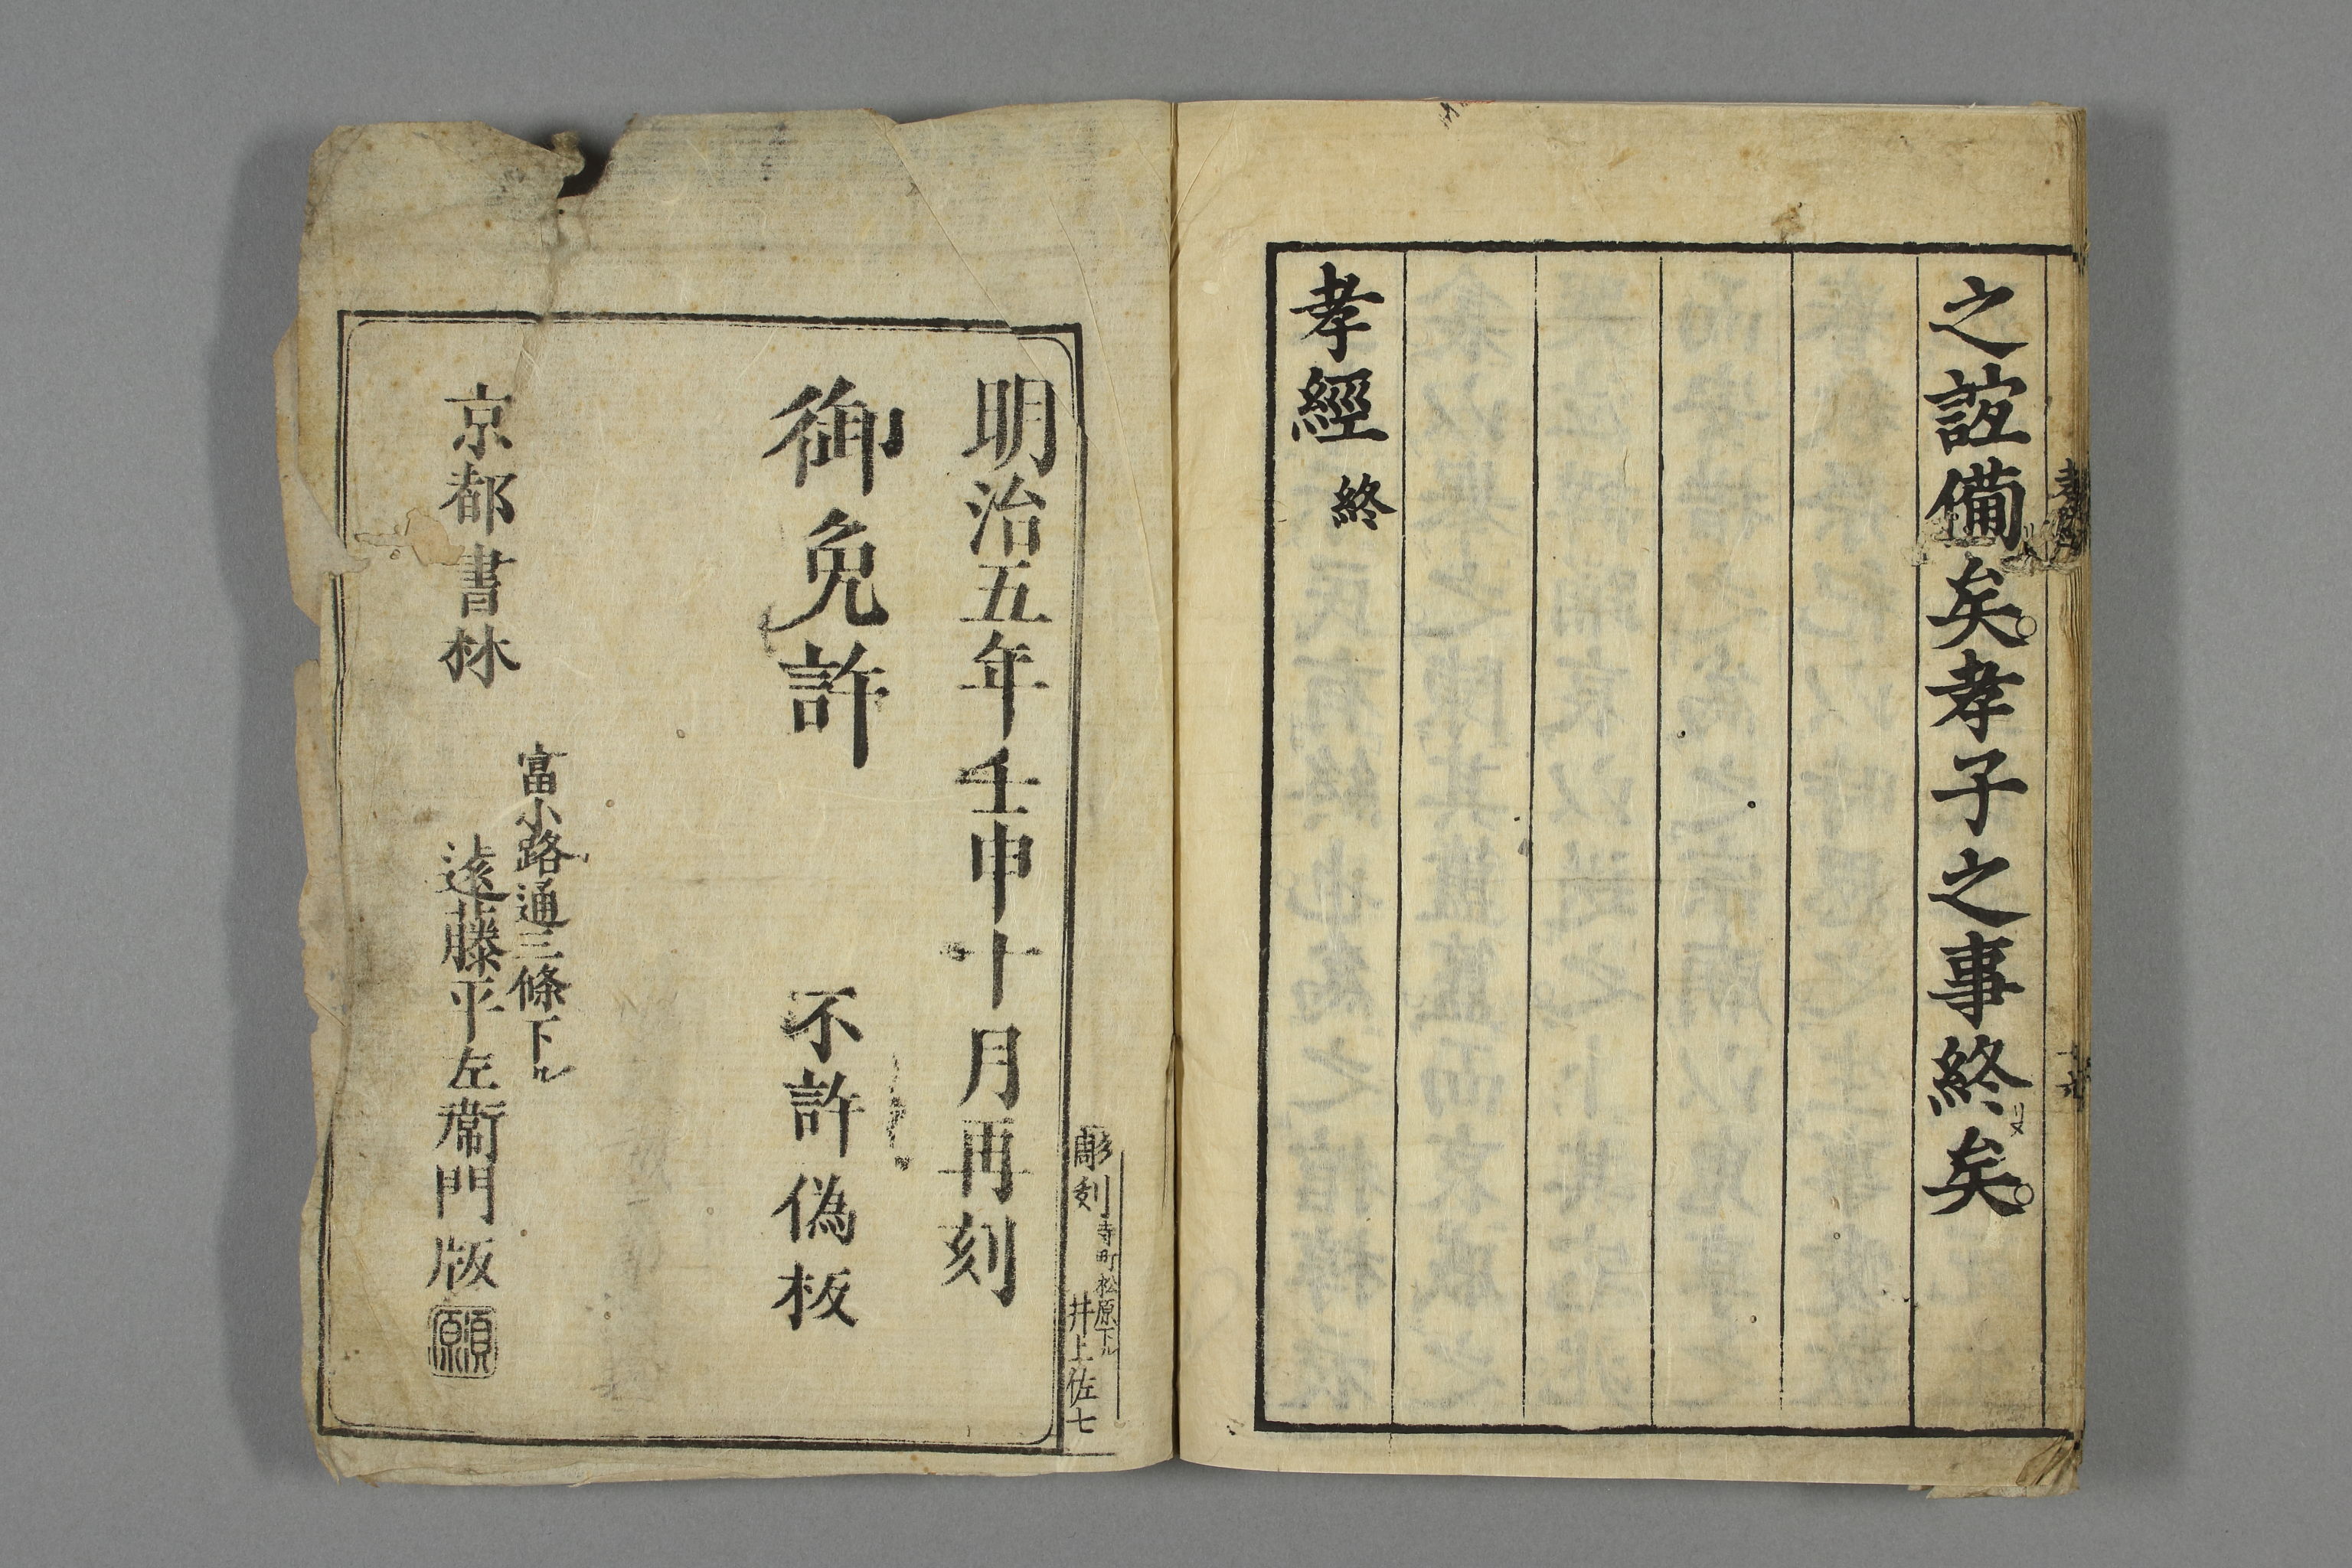 之誼備矣。孝子之事終矣。
孝經 終
彫刻 寺町松原下ル
井上佐七
明治五年壬申十月再刻
御免許 不許偽板
富小路通三條下ル
京都書林 遠藤平左衛門版